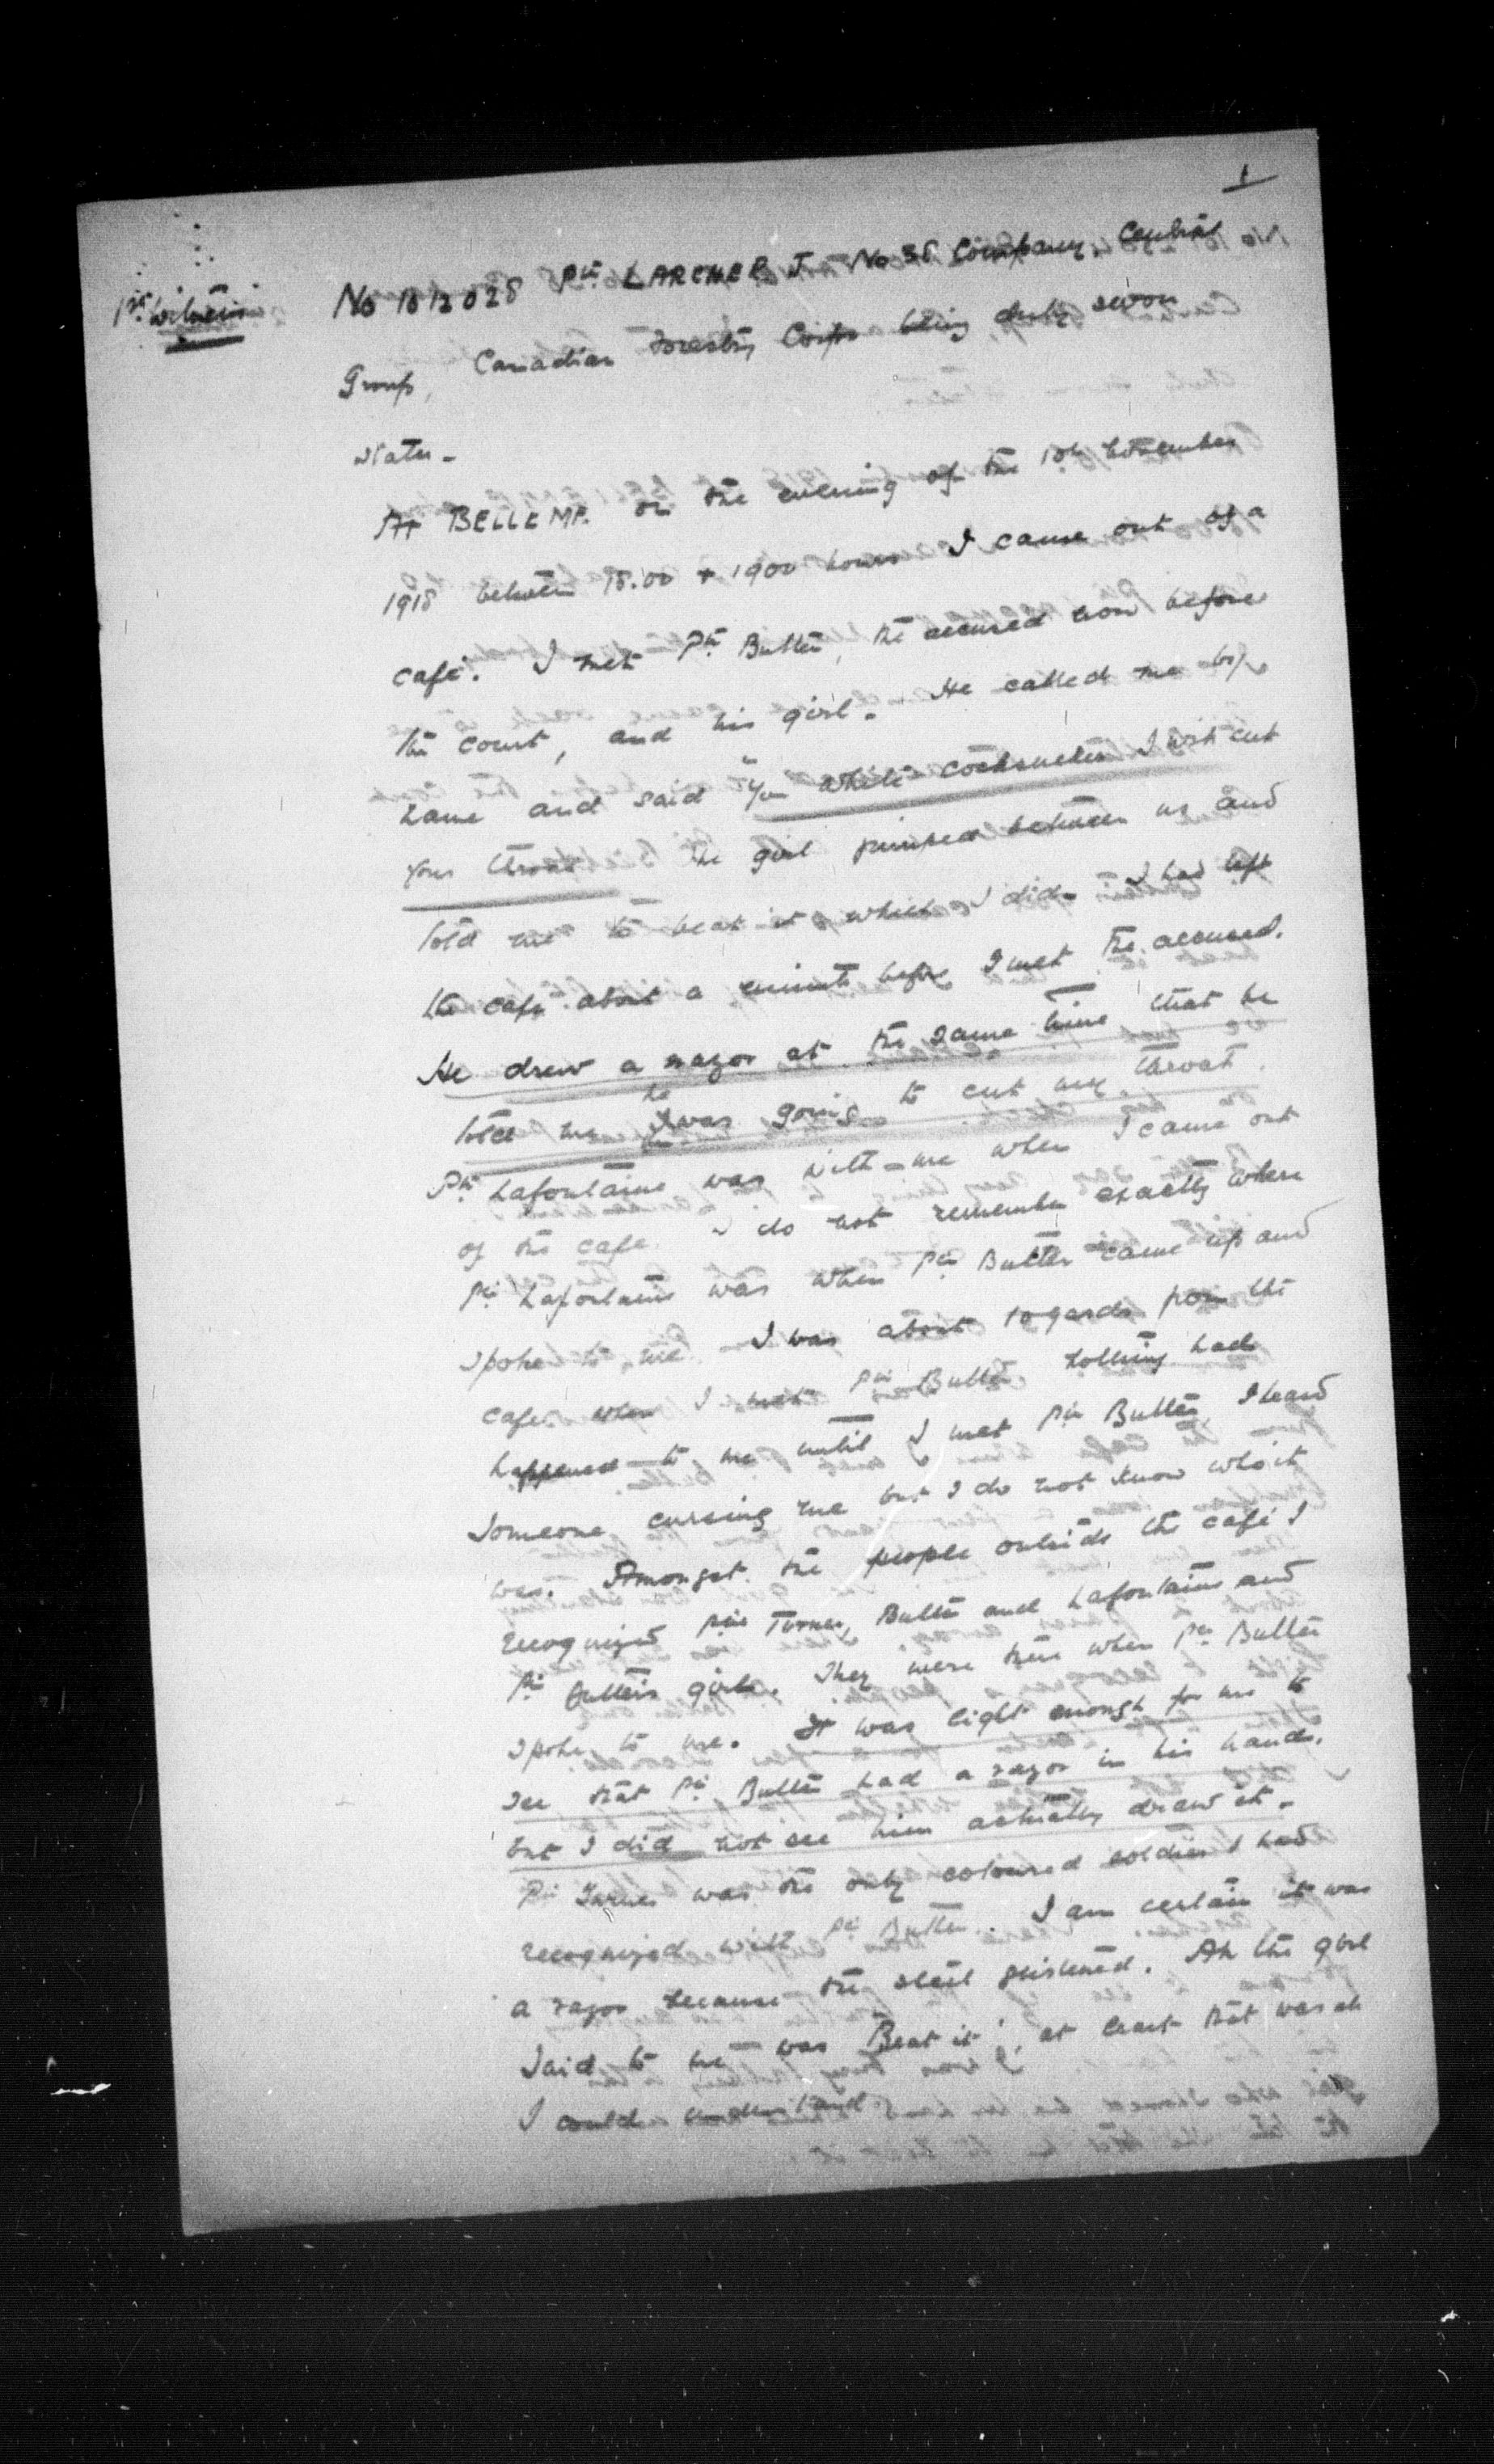 1
1st Witness
No 1012028 Pte LARCHER J. No 38 Company, Central
Group, Canadian Forestry Corps being duly sworn
states -
At BELLEME. on the evening of the 10th November
1918 between 18.00 + 1900 hours I came out of a
café. I met Pte Butler, the accused now before
the court, and his girl. He called me by
name and said "You white cocksucker I will cut
your throat" The girl jumped between us and
told me to beat it which I did. I had left
the café about a minute before I met the accused.
He drew a razor at the same time that he
told me he was going to cut my throat.
Pte Lafontaine was with me when I came out
of the café. I do not remember exactly where
Pte Lafontaine was when Pte Butler came up and
spoke to me. I was about 10 yards from the
café when I met Pte Butler. Nothing had
happened to me until I met Pte Butler. I heard
someone cursing me but I do not know who it
was. Amongst the people outside the café I
recognized Ptes Turner, Butler and Lafontaine and
Pte Butler's girl. They were there when Pte Butler
spoke to me. It was light enough for me to
see that Pte Butler had a razor in his hands.
but I did not see him actually draw it.
Pte Turner was the only coloured soldier I had
recognized with Pte Butler. I am certain it was
a razor because the steel glistened. All the girl
said to me was "Beat it", at least that was all
I could understand